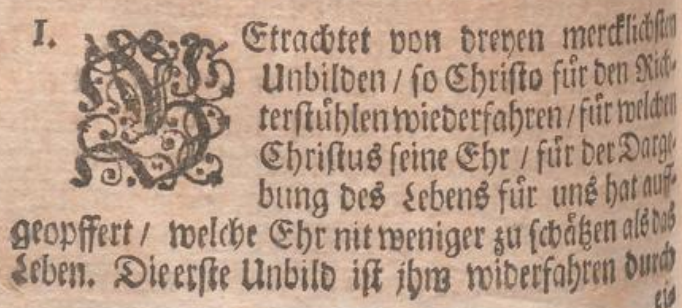 I. BEtrachtet von dreyen mercklichsten
Unbilden / so Christo für den Rich-
terstühlen wiederfahren / für welchen
Christus seine Ehr / für der Darge-
bung des Lebens für uns hat auff-
geopffert / welche Ehr nit weniger zu schätzen als das
Leben. Die erste Unbild ist jhm widerfahren durch
ein